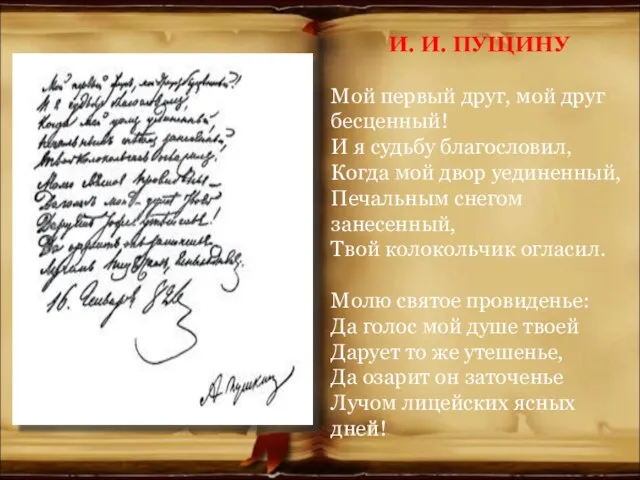 И. И. ПУЩИНУ
Мой первый друг, мой друг
бесценный!
И я судьбу благословил,
Когда мой двор уединенный,
Печальным снегом
занесенный,
Твой колокольчик огласил.
Молю святое провиденье:
Да голос мой душе твоей
Дарует то же утешенье,
Да озарит он заточенье
Лучом лицейских ясных
дней!
Мой первый друг, мой друг бесценный!
И я судьбу благословил,
Когда мой двор уединенный,
Печальным снегом занесенный,
Твой колокольчик огласил.
Молю святое провиденье
Да голос мой душе твоей
Дарует то же утешенье!
Да озарит он заточенье
Лучом лицейских ясных дней.
А. Пушкин